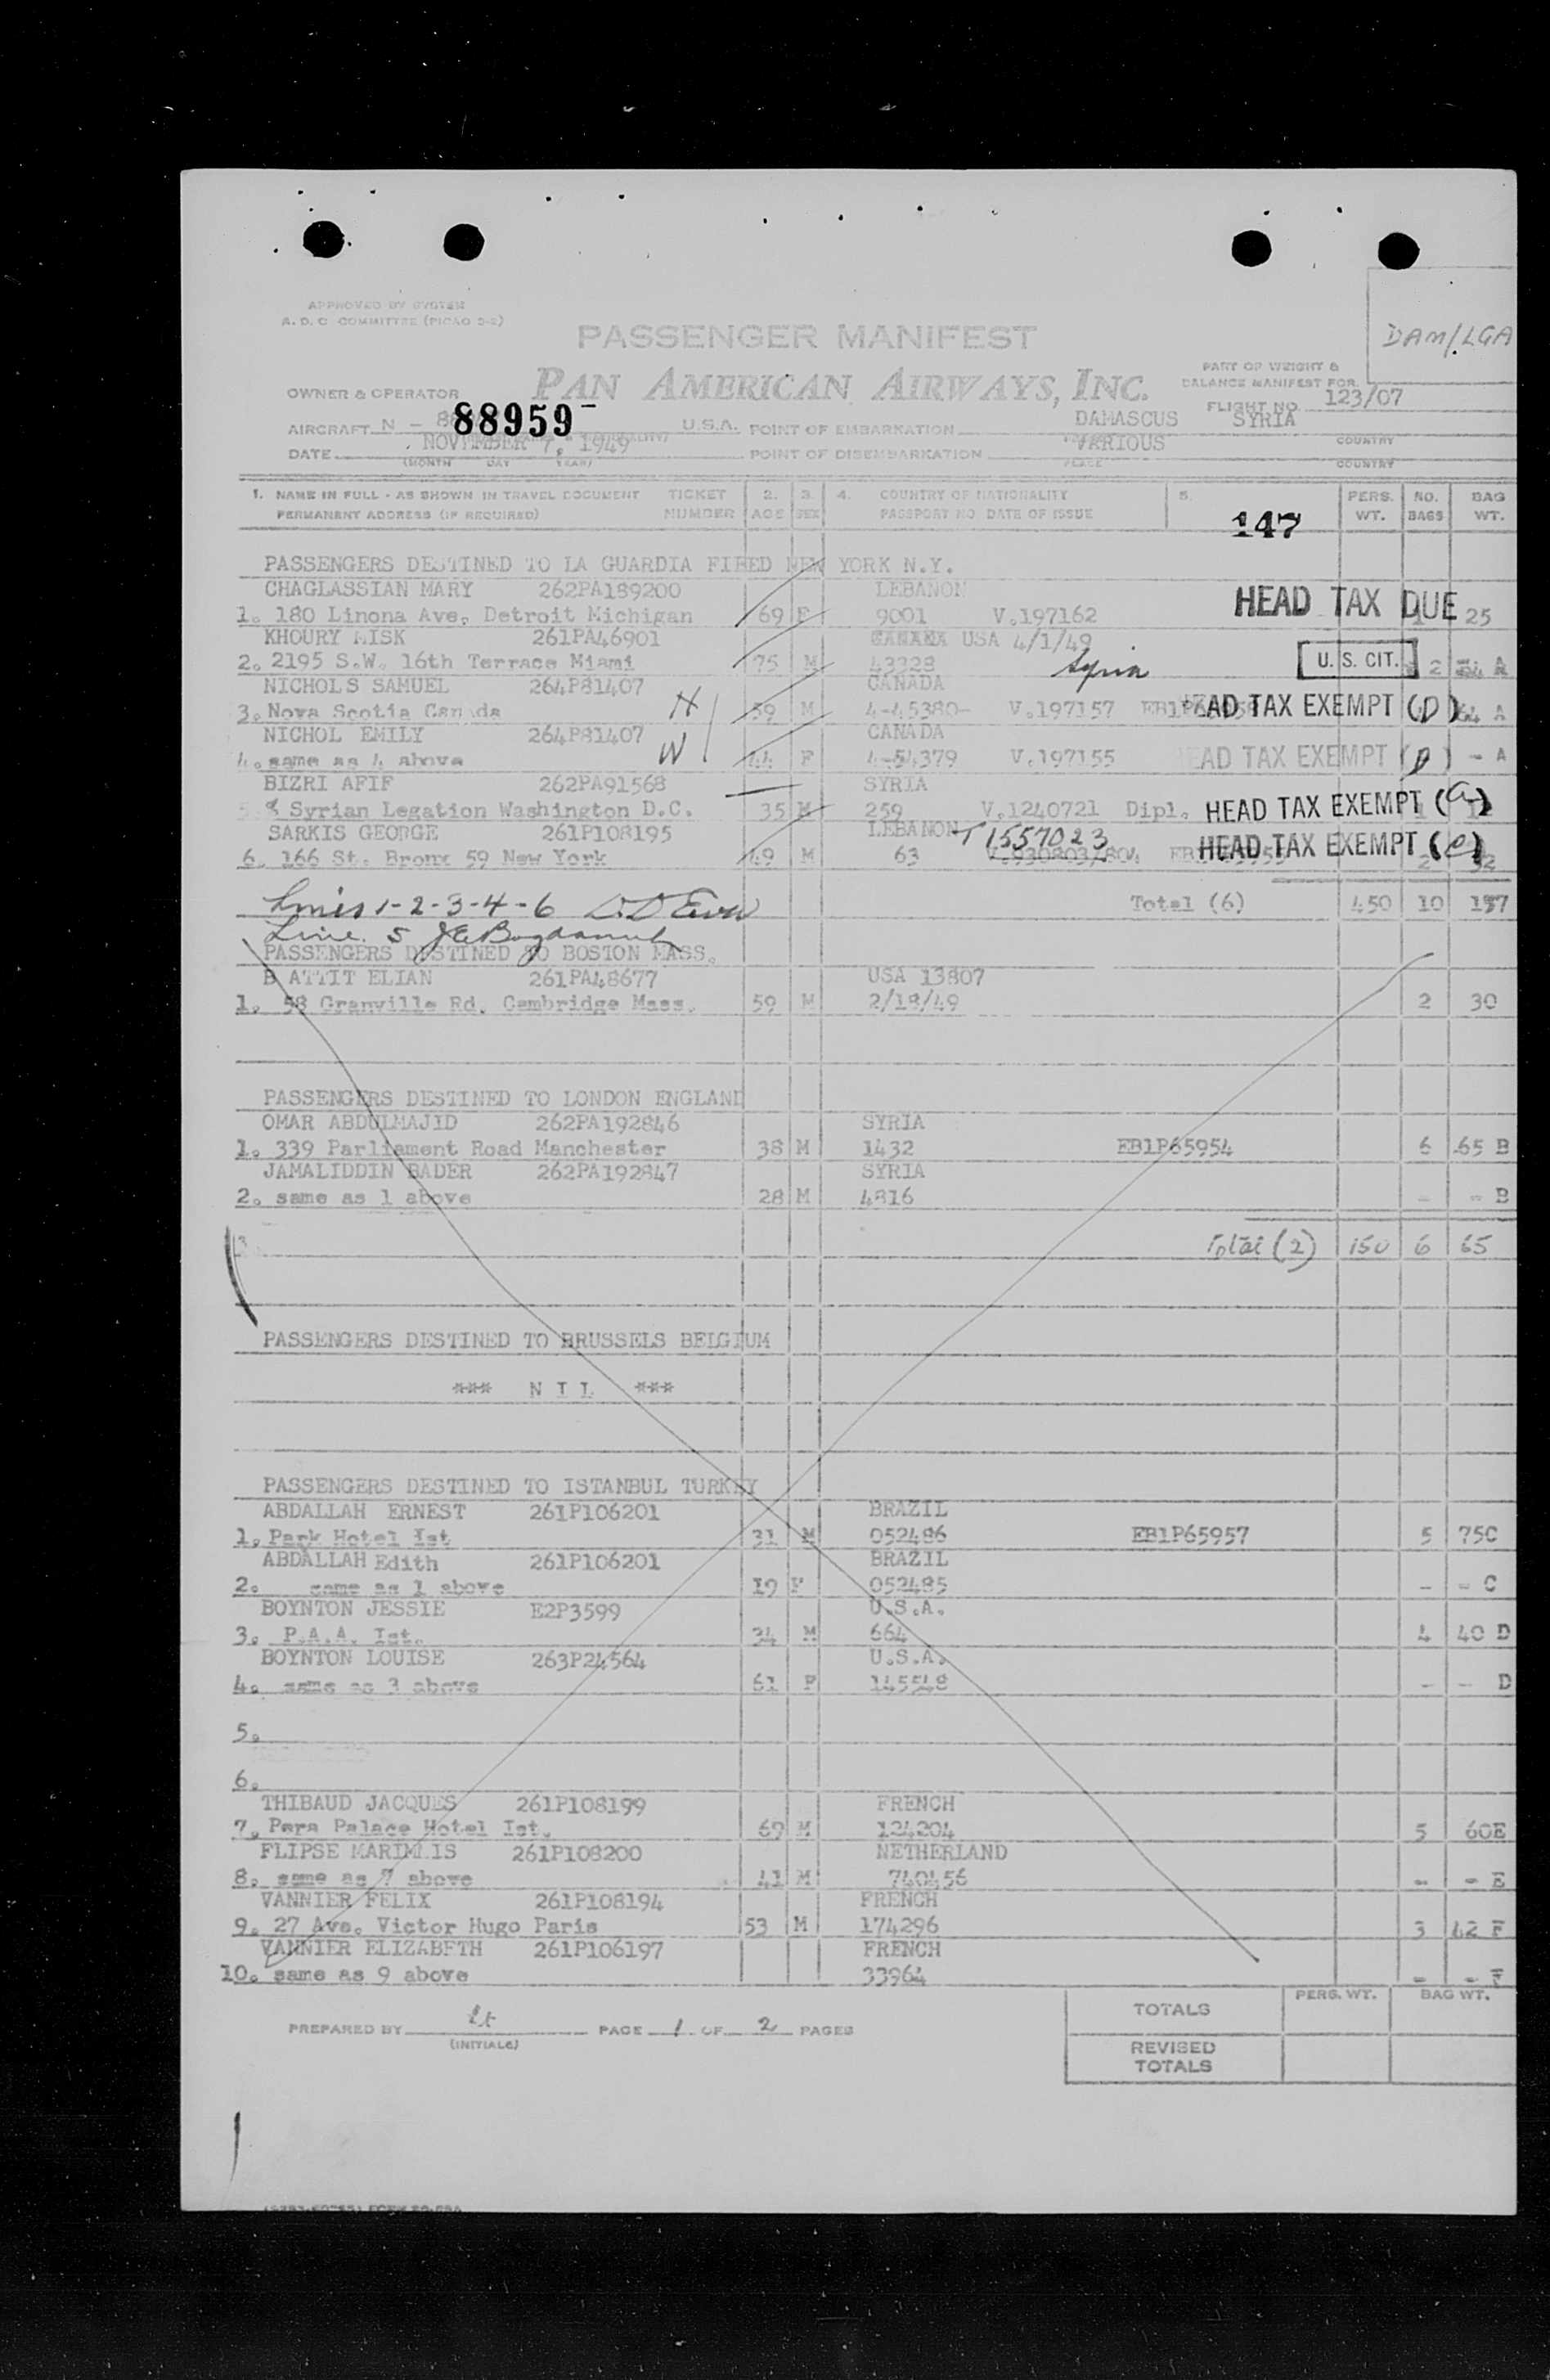 APPROVED BY SYSTEM
A. D. C. COMMITTEE (PICAO 2-2)
DAM/LGA
PASSENGER MANIFEST
PAN AMERICAN AIRWAYS, INC.
PART OF WEIGHT & BALANCE MANIFEST FOR
FLIGHT NO. 123/07
OWNER & OPERATOR
AIRCRAFT N - 88959 U.S.A. POINT OF EMBARKATION DAMASCUS SYRIA
COUNTRY
DATE NOVEMBER 7, 1949 POINT OF DISEMBARKATION VARIOUS
(MONTH DAY YEAR) PLACE COUNTRY
1. NAME IN FULL - AS SHOWN IN TRAVEL DOCUMENT TICKET 2. 3. 4. COUNTRY OF NATIONALITY 5. PERS. NO. BAG
PERMANENT ADDRESS (IF REQUIRED) NUMBER AGE SEX PASSPORT NO DATE OF ISSUE WT. BAGS WT.
147
PASSENGERS DESTINED TO LA GUARDIA FIEED NEW YORK N.Y.
CHAGLASSIAN MARY 262PA189200 LEBANON
1. 180 Linona Ave. Detroit Michigan 69 F 9001 V.197162 HEAD TAX DUE 25
KHOURY MISK 261PA46901 USA 4/1/49
2. 2195 S.W. 16th Terrace Miami 75 M 43328 Syria U. S. CIT. 2 A
NICHOLS SAMUEL 264P81407 CANADA
3. Nova Scotia Canada H 59 M 4-45380- V.197157 HEAD TAX EXEMPT (D) 64 A
NICHOL EMILY 264P81407 CANADA
4. same as 4 above W 44 F 4-54379 V.197155 HEAD TAX EXEMPT (D) - A
BIZRI AFIF 262PA91568 SYRIA
5. % Syrian Legation Washington D.C. 35 M 259 V.1240721 Dipl. HEAD TAX EXEMPT (a)
SARKIS GEORGE 261P108195 LEBANON T1557023
6. 166 St. Bronx 59 New York 49 M 63 V.930803/804 HEAD TAX EXEMPT (e) 2 32
Lines 1-2-3-4-6
Total (6) 450 10 157
Line 5
PASSENGERS DESTINED TO BOSTON MASS.
B ATTIT ELIAN 261PA48677 USA 13807
1. 58 Granville Rd. Cambridge Mass. 59 M 2/18/49 2 30
PASSENGERS DESTINED TO LONDON ENGLAND
OMAR ABDULMAJID 262PA192846 SYRIA
1. 339 Parliament Road Manchester 38 M 1432 EB1P65954 6 65 B
JAMALIDDIN BADER 262PA192847 SYRIA
2. same as 1 above 28 M 4816 - - B
3 Total (2) 150 6 65
PASSENGERS DESTINED TO BRUSSELS BELGIUM
*** N I L ***
PASSENGERS DESTINED TO ISTANBUL TURKEY
ABDALLAH ERNEST 261P106201 BRAZIL
1. Park Hotel Ist 31 M 052486 EB1P65957 5 75C
ABDALLAH Edith 261P106201 BRAZIL
2. same as 1 above 19 F 052485 - - C
BOYNTON JESSIE E2P3599 U.S.A.
3. P.A.A. Ist. 34 M 664 4 40 D
BOYNTON LOUISE 263P24564 U.S.A.
4. same as 3 above 61 F 145548 - - D
5.
6.
THIBAUD JACQUES 261P108199 FRENCH
7. Pera Palace Hotel Ist. 69 M 124204 5 60E
FLIPSE 261P108200 NETHERLAND
8. same as 7 above 41 M 740456 - - E
VANNIER FELIX 261P108194 FRENCH
9. 27 Ave. Victor Hugo Paris 53 M 174296 3 42 F
VANNIER ELIZABETH 261P106197 FRENCH
10. same as 9 above 33964 - - F
PREPARED BY Lt PAGE 1 OF 2 PAGES
(INITIALS)
PERS. WT. BAG WT.
TOTALS
REVISED TOTALS